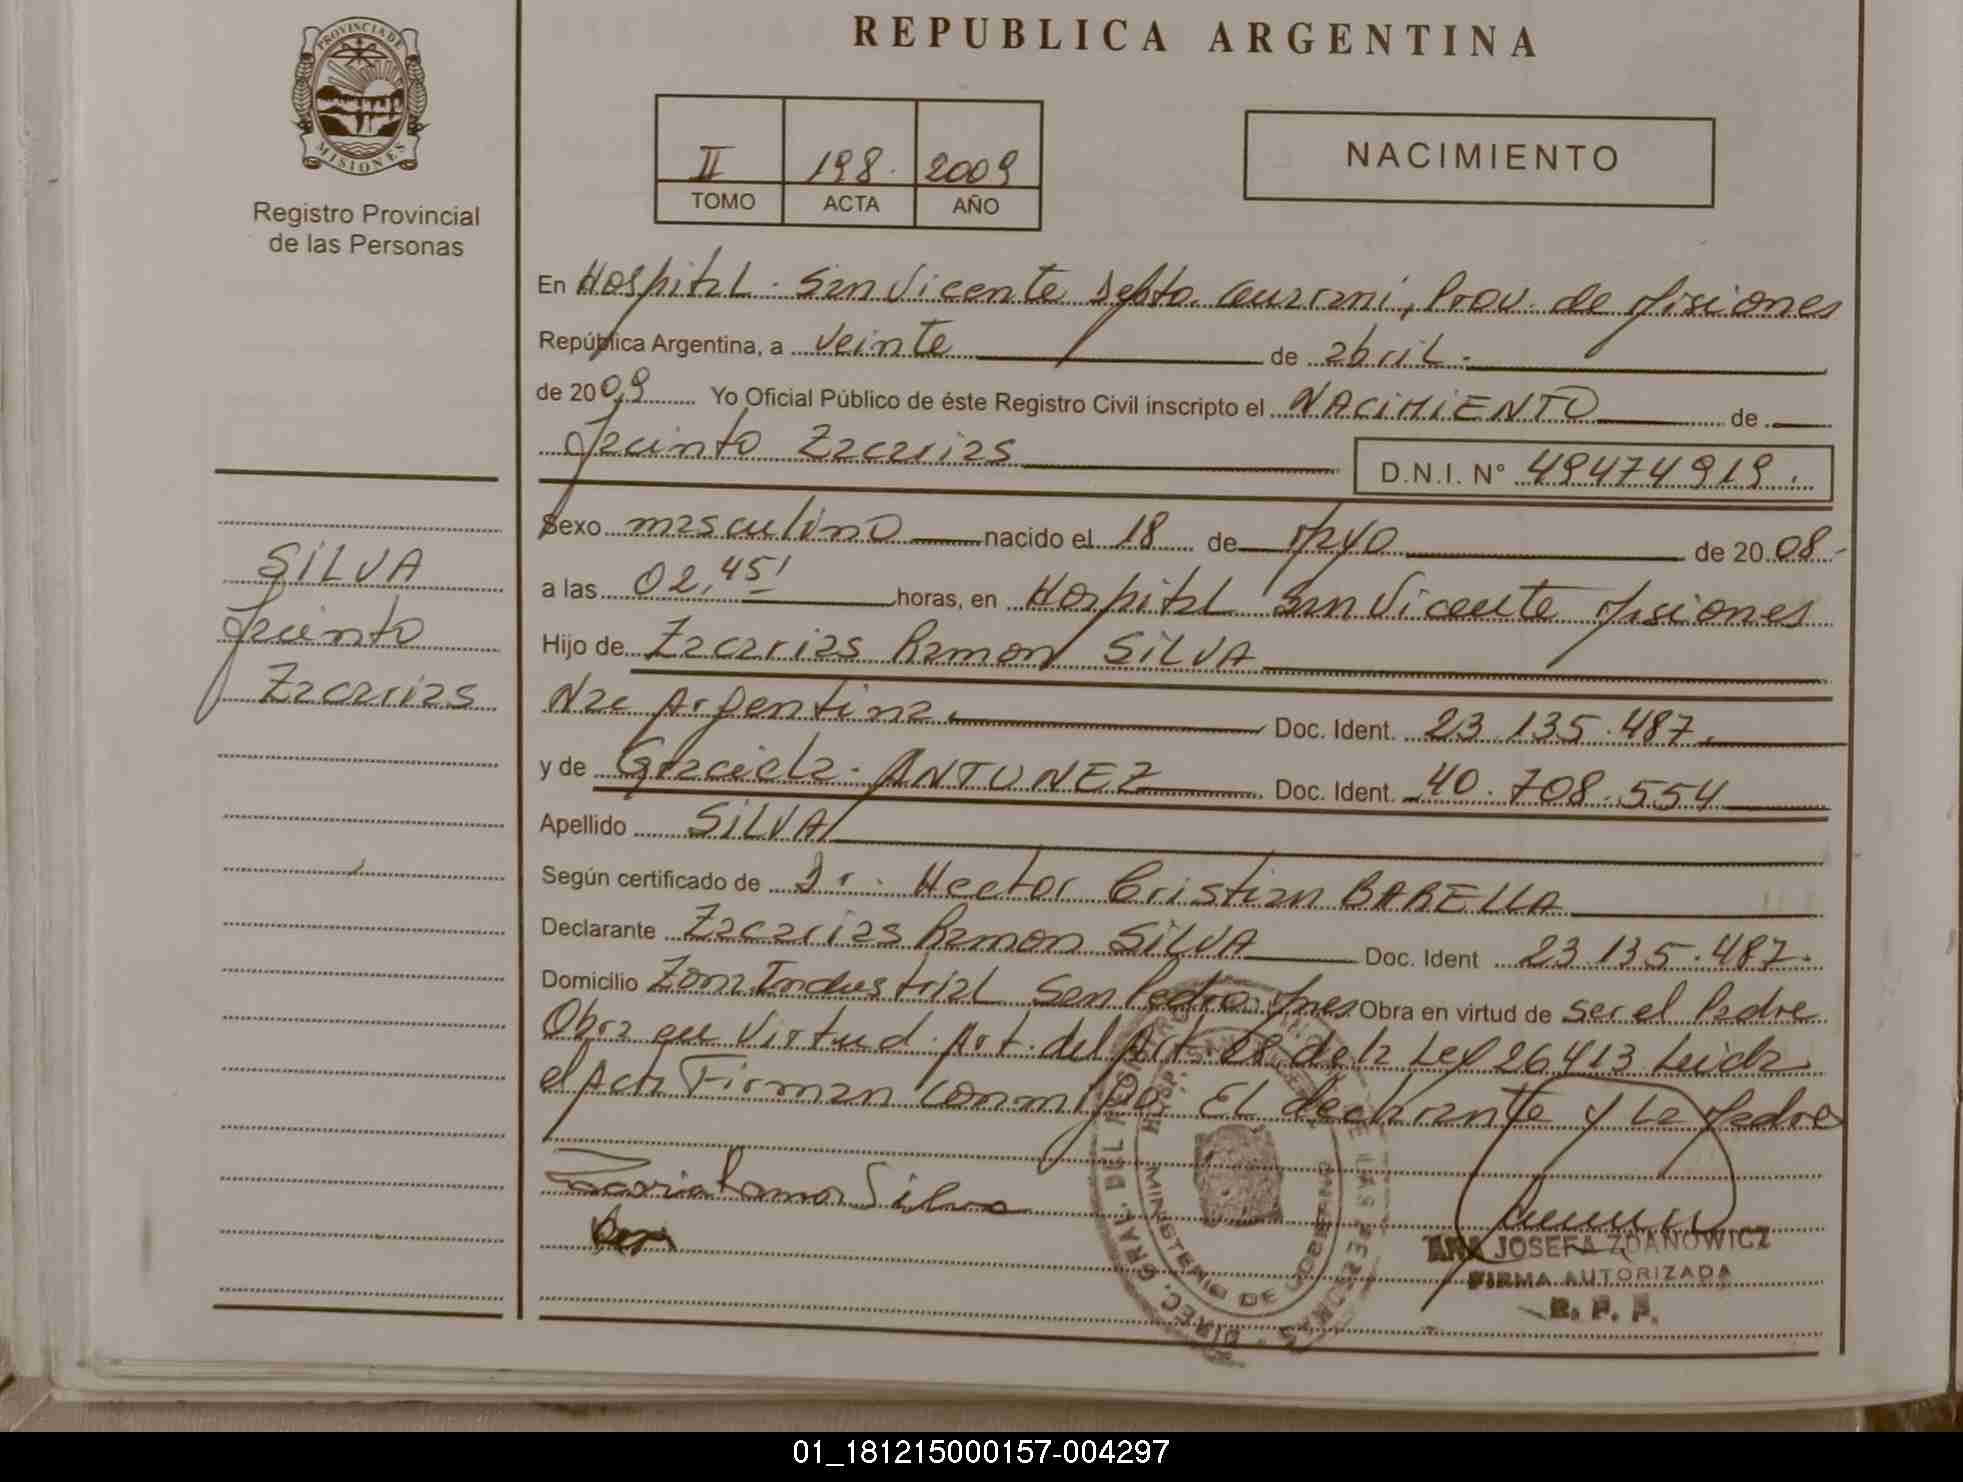 REPUBLICA ARGENTINA
PROVINCIA DE
MISIONES
Registro Provincial
de las Personas
II 198. 2009
TOMO ACTA AÑO
NACIMIENTO
En Hospital. San Vicente Depto. Guarani, Prov. de Misiones
República Argentina, a veinte de abril.
de 2009 Yo Oficial Público de éste Registro Civil inscripto el NACIMIENTO de
Jacinto Zacarias D.N.I. N° 49474919.
Sexo masculino nacido el 18 de Mayo de 2008-
a las 02,45' horas, en Hospital San Vicente Misiones
Hijo de Zacarias Ramon SILVA
Nac Argentina. Doc. Ident. 23.135.487.
y de Graciela. ANTUNEZ Doc. Ident. 40.708.554
Apellido SILVA
Según certificado de Dr. Hector Cristian BARELLA
Declarante Zacarias Ramon SILVA Doc. Ident 23.135.487.
Domicilio Zona Industrial San Pedro Mnes Obra en virtud de ser el Padre
Obra en Virtud. Art. del Art. 28 de la Ley 26413 Leida
el Acta Firman conmigo. El declarante y La Madre
SILVA
Jacinto
Zacarias
Zacaria Ramon Silva
DIREC. GRAL. DEL REGISTRO DE LAS PERSONAS
MINISTERIO DE GOBIERNO
ANA JOSEFA ZDANOWICZ
FIRMA AUTORIZADA
R. P. P.
01_181215000157-004297